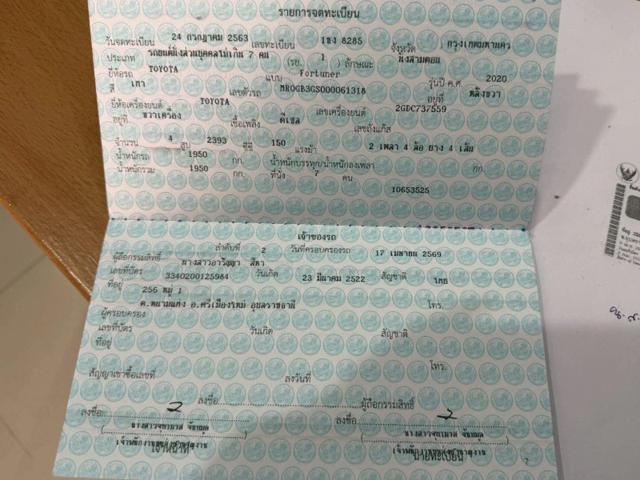 รายการจดทะเบียน
วันจดทะเบียน 24 กรกฎาคม 2563 เลขทะเบียน 8285 จังหวัด กรุงเทพมหานคร
ประเภท รถยนต์นั่งส่วนบุคคลไม่เกิน 7 คน (รย. 1 ) ลักษณะ นั่งสามตอน
ยี่ห้อรถ TOYOTA แบบ Fortuner รุ่นปี ค.ศ. 2020
สี เทา เลขตัวรถ MR0GB3GS000061318 อยู่ที่ หลังขวา
ยี่ห้อเครื่องยนต์ TOYOTA เลขเครื่องยนต์ 2GDC737559
อยู่ที่ ขวาเครื่อง เชื้อเพลิง ดีเซล เลขถังแก๊ส
จำนวน 4 สูบ 2393 ซีซี 150 แรงม้า 2 เพลา 4 ล้อ ยาง 4 เส้น
น้ำหนักรถ 1950 กก. น้ำหนักบรรทุก/น้ำหนักลงเพลา กก.
น้ำหนักรวม 1950 กก. ที่นั่ง 7 คน
10653525
เจ้าของรถ
ลำดับที่ 2 วันที่ครอบครองรถ 17 เมษายน 2569
ผู้ถือกรรมสิทธิ์ นางสาวอารียา สีดา
เลขที่บัตร 3340200125984 วันเกิด 23 มีนาคม 2522 สัญชาติ ไทย
ที่อยู่ 256 หมู่ 1
ต.หนามแท่ง อ.ศรีเมืองใหม่ อุบลราชธานี โทร.
ผู้ครอบครอง
เลขที่บัตร วันเกิด สัญชาติ
ที่อยู่
โทร.
สัญญาเช่าซื้อเลขที่ ลงวันที่
ลงชื่อ ผู้ถือกรรมสิทธิ์
ลงชื่อ ลงชื่อ
เจ้าหน้าที่ นายทะเบียน